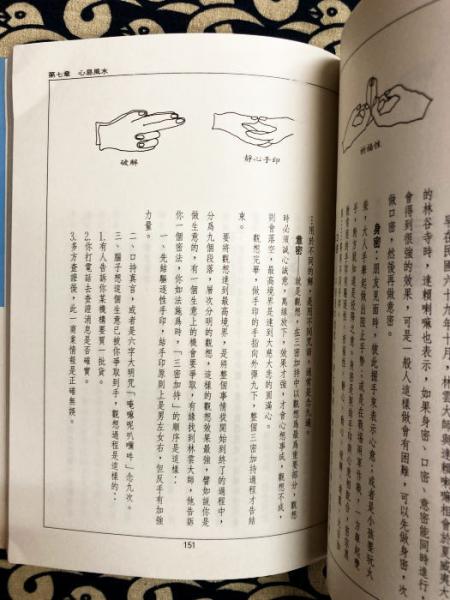 第七章　心易風水
破解
靜心手印
祈福性
早在民國六十九年十月，林雲大師與達賴喇嘛相會於夏威夷大
的林谷寺時，達賴喇嘛也表示，如果身密、口密、意密能同時進行，
會得到很強的效果，可是一般人這樣做會有困難，可以先做身密，次
做口密，然後再做意密。
身密：朋友見面時，彼此握手來表示心意；或者是小孩要玩大
意密——就是觀想，在三密加持中以觀想為最為重要部分，觀想
時必須誠心誠意，萬緣放下，效果才強，才會心想事成，觀想不成，
則會落空，最高境界是達到大慈大悲的圓滿心。
觀想完畢，做手印的手指向外彈九下，整個三密加持過程才告結
束。
要將觀想達到最高境界，是將整個事情從開始到終了的過程中，
分為九個段落，層次分明的觀想，這樣的觀想效果最強，譬如說你是
做生意的，有一個生意上的機會要爭取，有緣找到林雲大師，他告訴
你一個密法，你如法施為時，「三密加持」的順序是這樣：
一、先結驅逐性手印，結手印原則上是男左女右，但反手有加強
力量。
二、口持真言，或者是六字大明咒「唵嘛呢叭囒吽」念九次。
三、腦子想這個生意已被你爭取到手，觀想過程是這樣的：
1.有人告訴你某機構要買一批貨。
2.你打電話去查證消息是否確實。
3.多方查證後，此一商業情報是正確無誤。
151